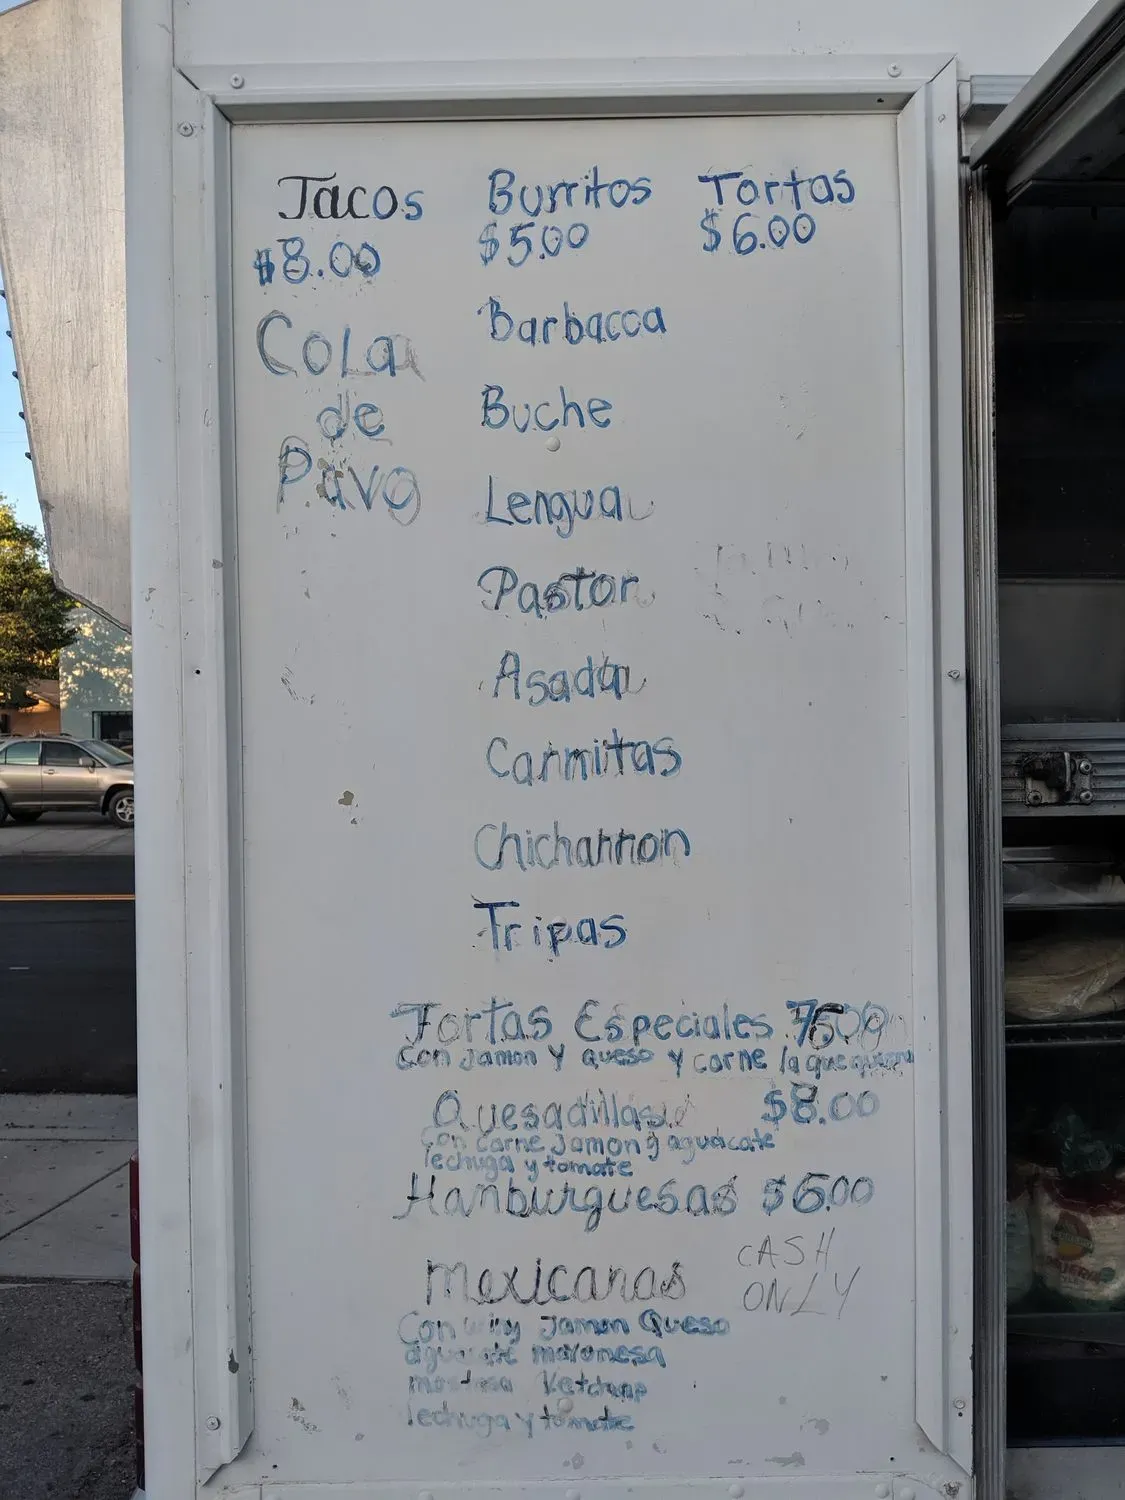 Tacos Burritos Tortas
$8.00 $5.00 $6.00
Cola
de
Pavo
Barbacca
Buche
Lengua
Pastor
Asada
Carnitas
Chicharron
Tripas
Tortas Especiales
con Jamon y queso y carne la que
Quesadillas $8.00
con carne Jamon y aguacate
lechuga y tomate
Hanburguesas $6.00
mexicanas
CASH
ONLY
Con Jamon Queso
aguacate mayonesa
mostasa Ketchup
lechuga y tomate